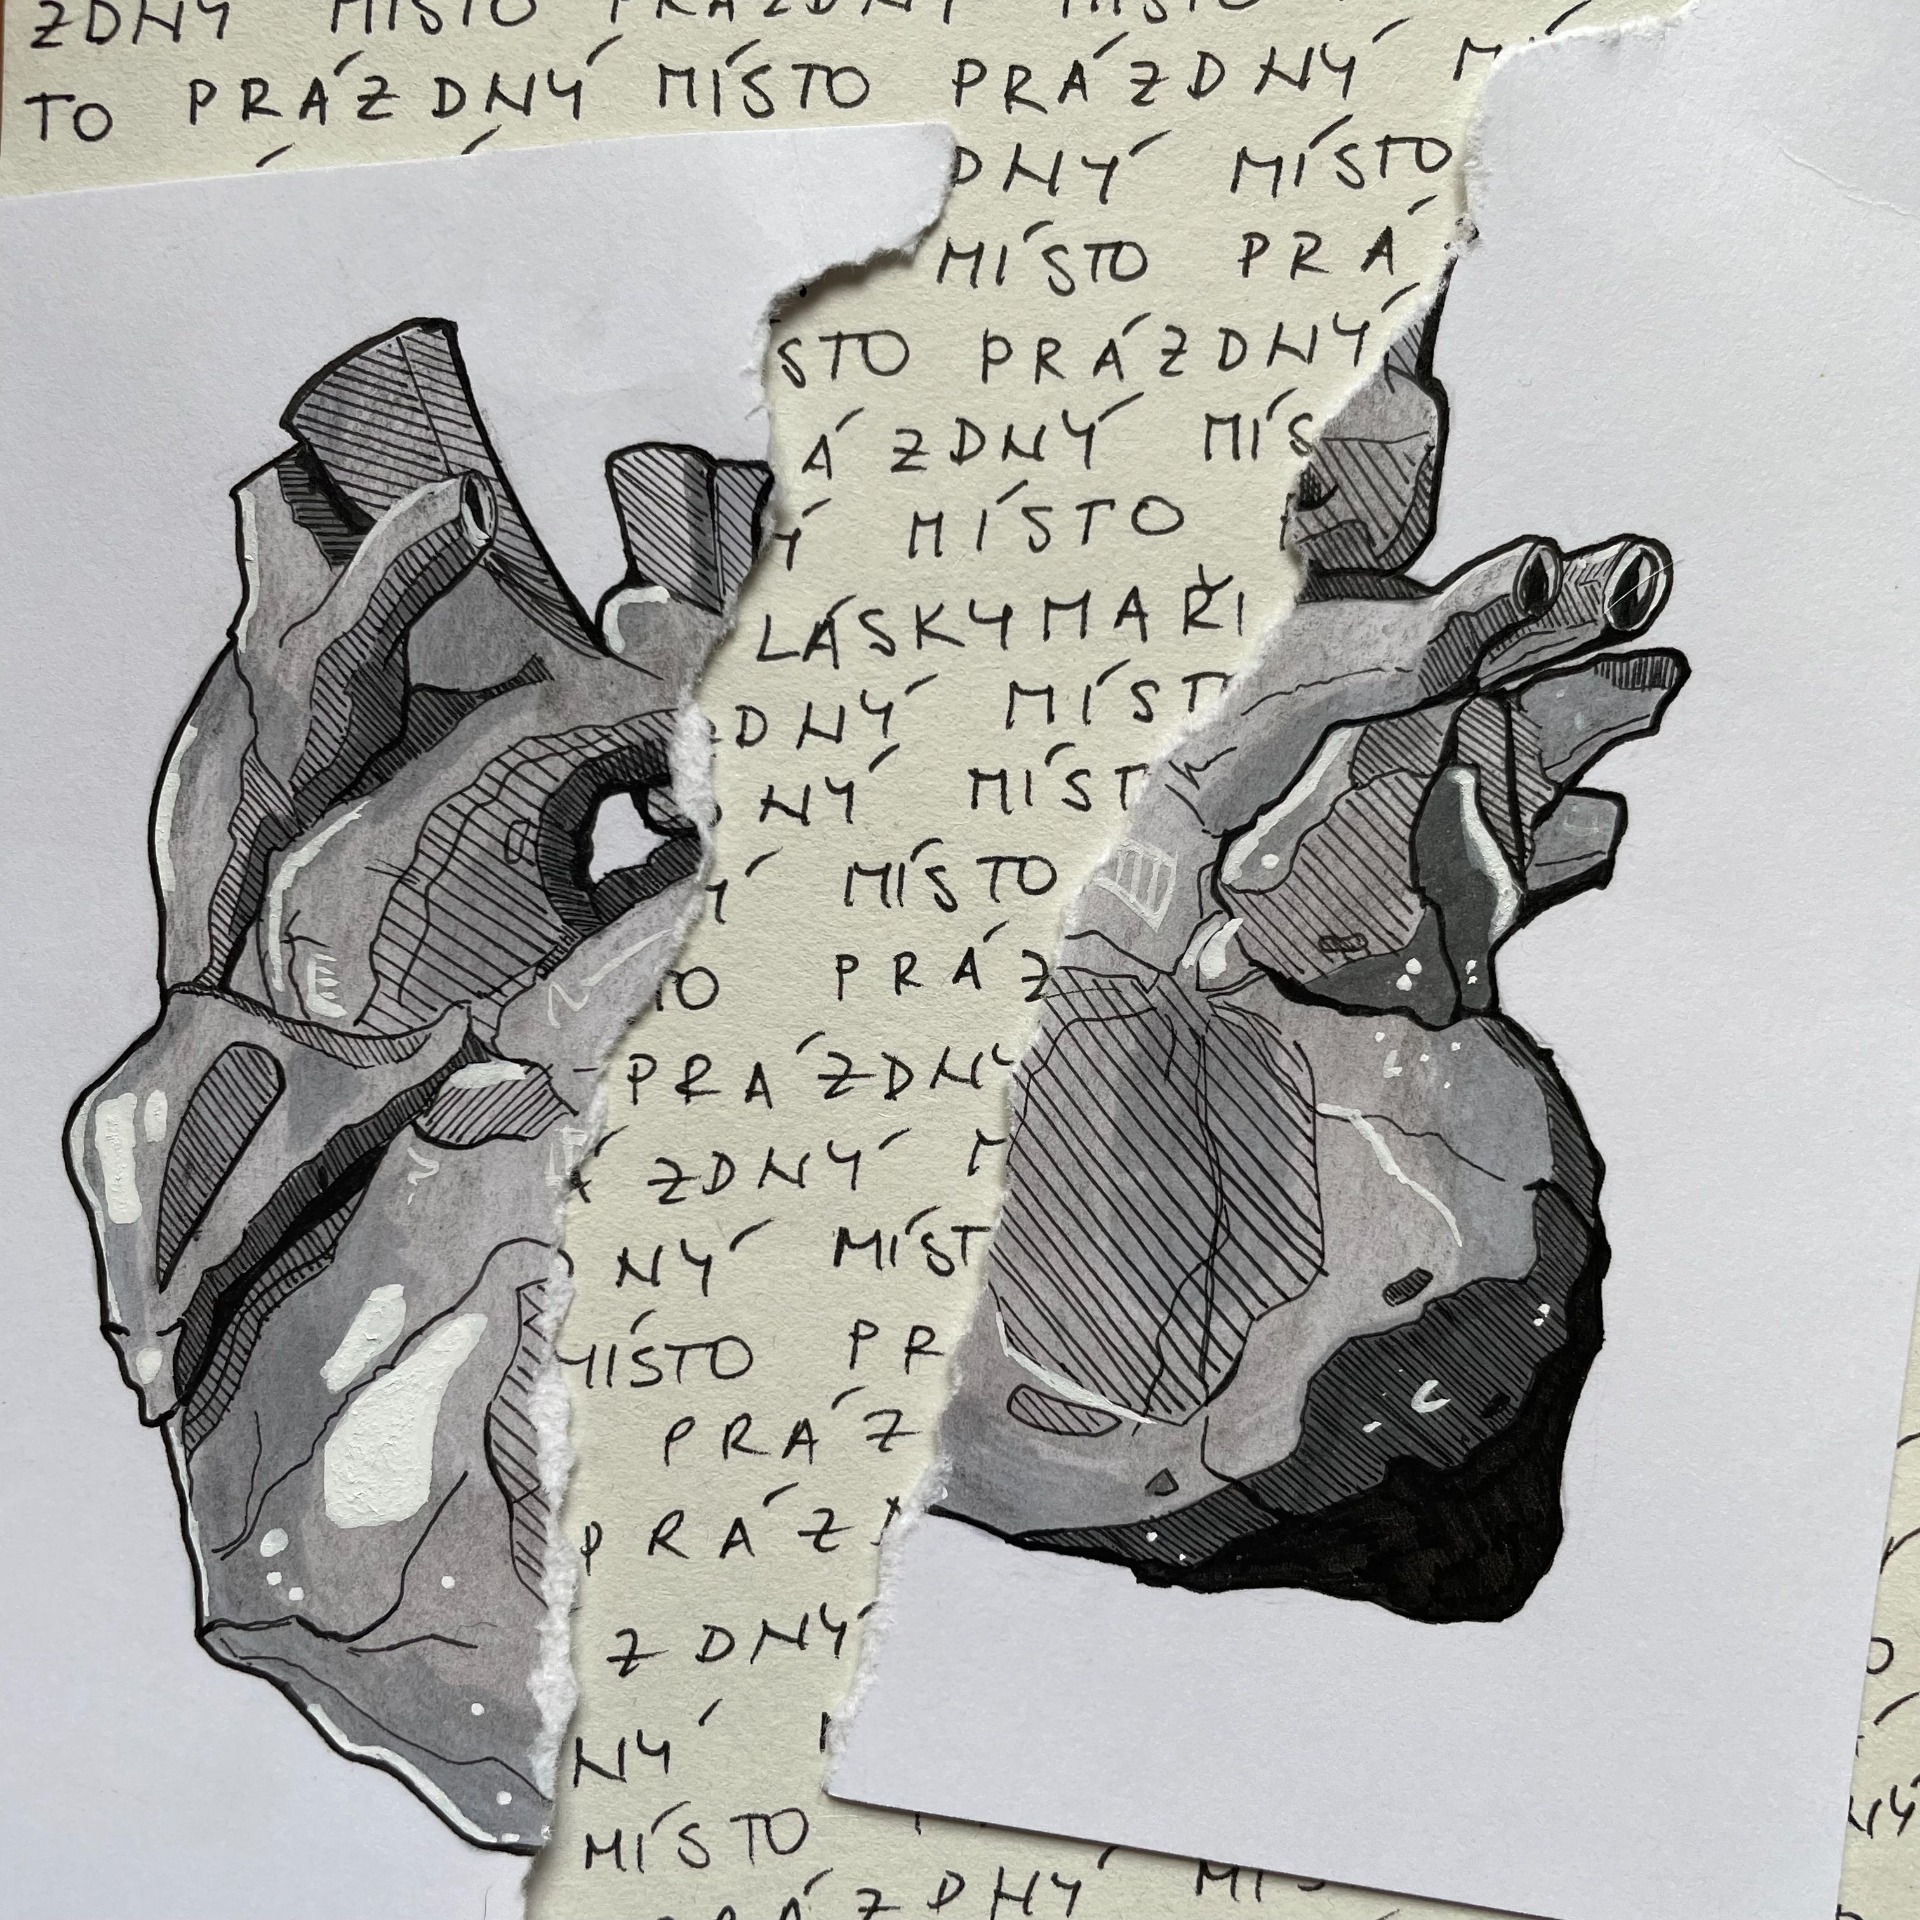 ZDNÝ MÍSTO PRÁZDNÝ MÍSTO
TO PRÁZDNÝ MÍSTO PRÁZDNÝ M
DNÝ MÍSTO
MÍSTO PRÁ
STO PRÁZDNÝ
ÁZDNÝ MÍS
Ý MÍSTO
LÁSKYMAŘI
DNÝ MÍST
NÝ MÍST
Ý MÍSTO
TO PRÁZ
PRÁZDNÝ
ÁZDNÝ M
NÝ MÍST
MÍSTO PR
PRÁZ
PRÁZ
ZDNÝ
NÝ
MÍSTO
RÁZDNÝ MÍS